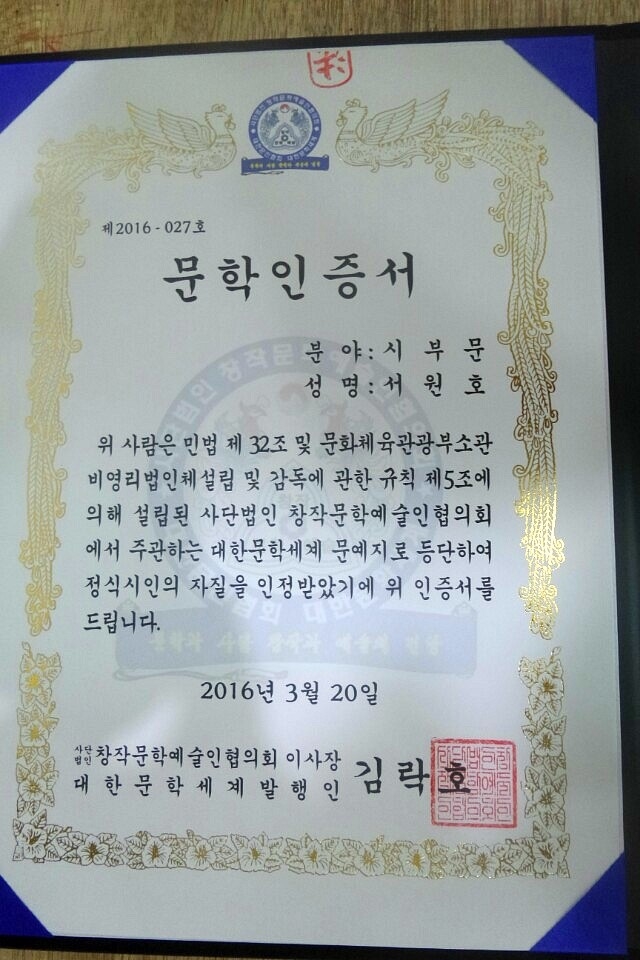 제2016 - 027호
문학인증서
분 야 : 시 부 문
성 명 : 서 원 호
위 사람은 민법 제 32조 및 문화체육관광부소관
비영리법인체설립 및 감독에 관한 규칙 제5조에
의해 설립된 사단법인 창작문학예술인협의회
에서 주관하는 대한문학세계 문예지로 등단하여
정식시인의 자질을 인정받았기에 위 인증서를
드립니다.
2016년 3월 20일
사단법인 창작문학예술인협의회 이사장
대 한 문 학 세 계 발 행 인
김 락 호